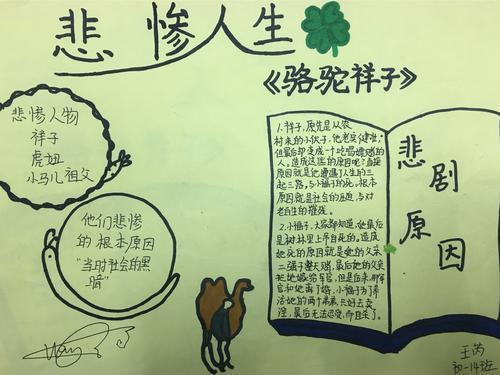 悲惨人生
《骆驼祥子》
悲惨人物
祥子
虎妞
小马儿祖父
他们悲惨
的根本原因
"当时社会的黑
暗"
1.祥子,原先是从农
村来的小伙子,他老实健壮,
但最后却变成一个吃喝嫖赌的
人。造成这些的原因呢?直接
原因就是他遭遇了人生的三
起三落,与小福子的死。根本
原因就是社会的压迫,与对
老百姓的摧残。
2.小福子,大家都知道,她最后
是树林里上吊自死的。造成
她死的原因就是她的父亲
二强子整天赌,最后她的父亲
把她嫁给军官,但是后来,那军
官和她离了婚,小福子为了养
活她的两个弟弟,只好去卖
淫,最后无法忍受,而自杀了。
悲剧
原因
王芮
初一14班